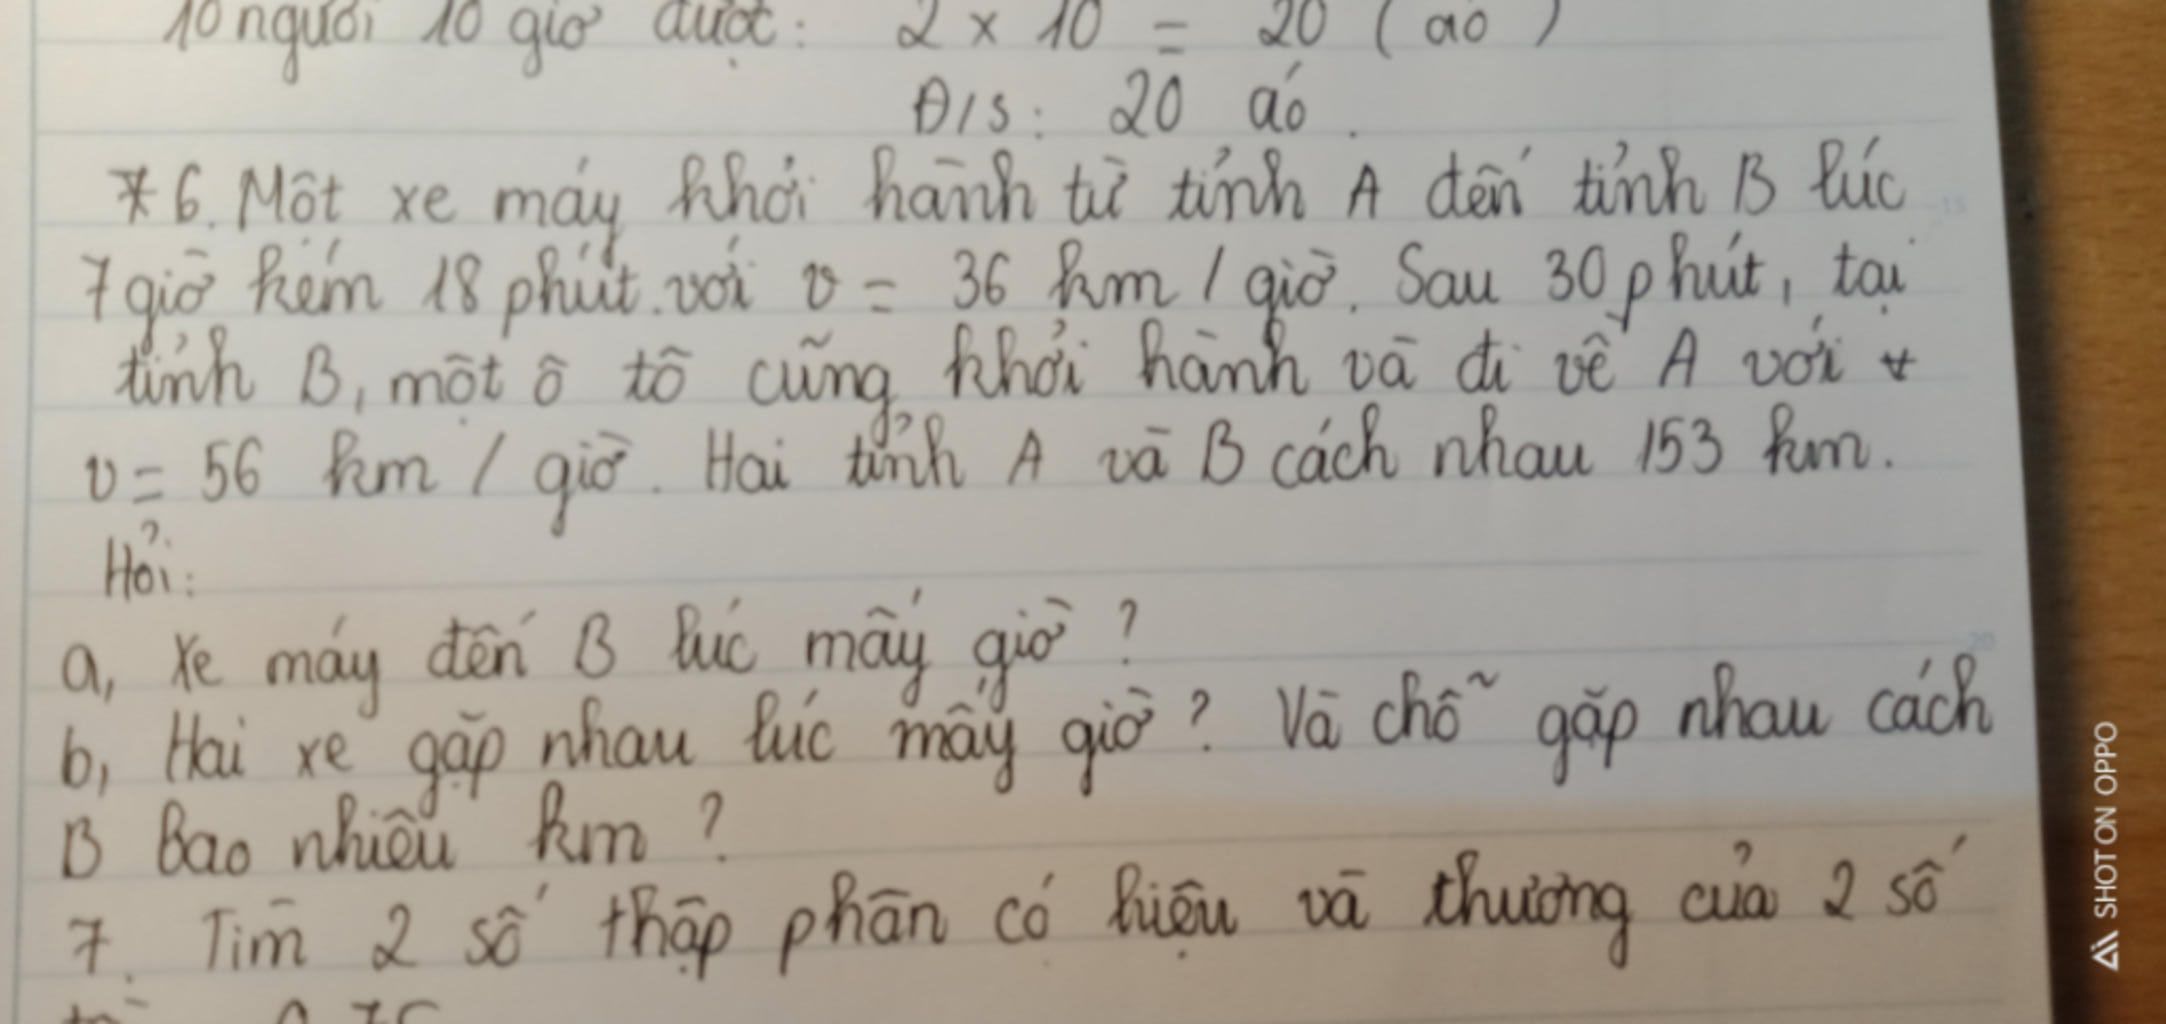 10 người 10 giờ được: 2 x 10 = 20 (áo)
Đ/S: 20 áo.
* 6. Một xe máy khởi hành từ tỉnh A đến tỉnh B lúc
7 giờ kém 18 phút. với v = 36 km / giờ. Sau 30 phút, tại
tỉnh B, một ô tô cũng khởi hành và đi về A với
v = 56 km / giờ. Hai tỉnh A và B cách nhau 153 km.
Hỏi:
a, Xe máy đến B lúc mấy giờ?
b, Hai xe gặp nhau lúc mấy giờ? Và chỗ gặp nhau cách
B Bao nhiêu km?
7. Tìm 2 số thập phân có hiệu và thương của 2 số
SHOT ON OPPO